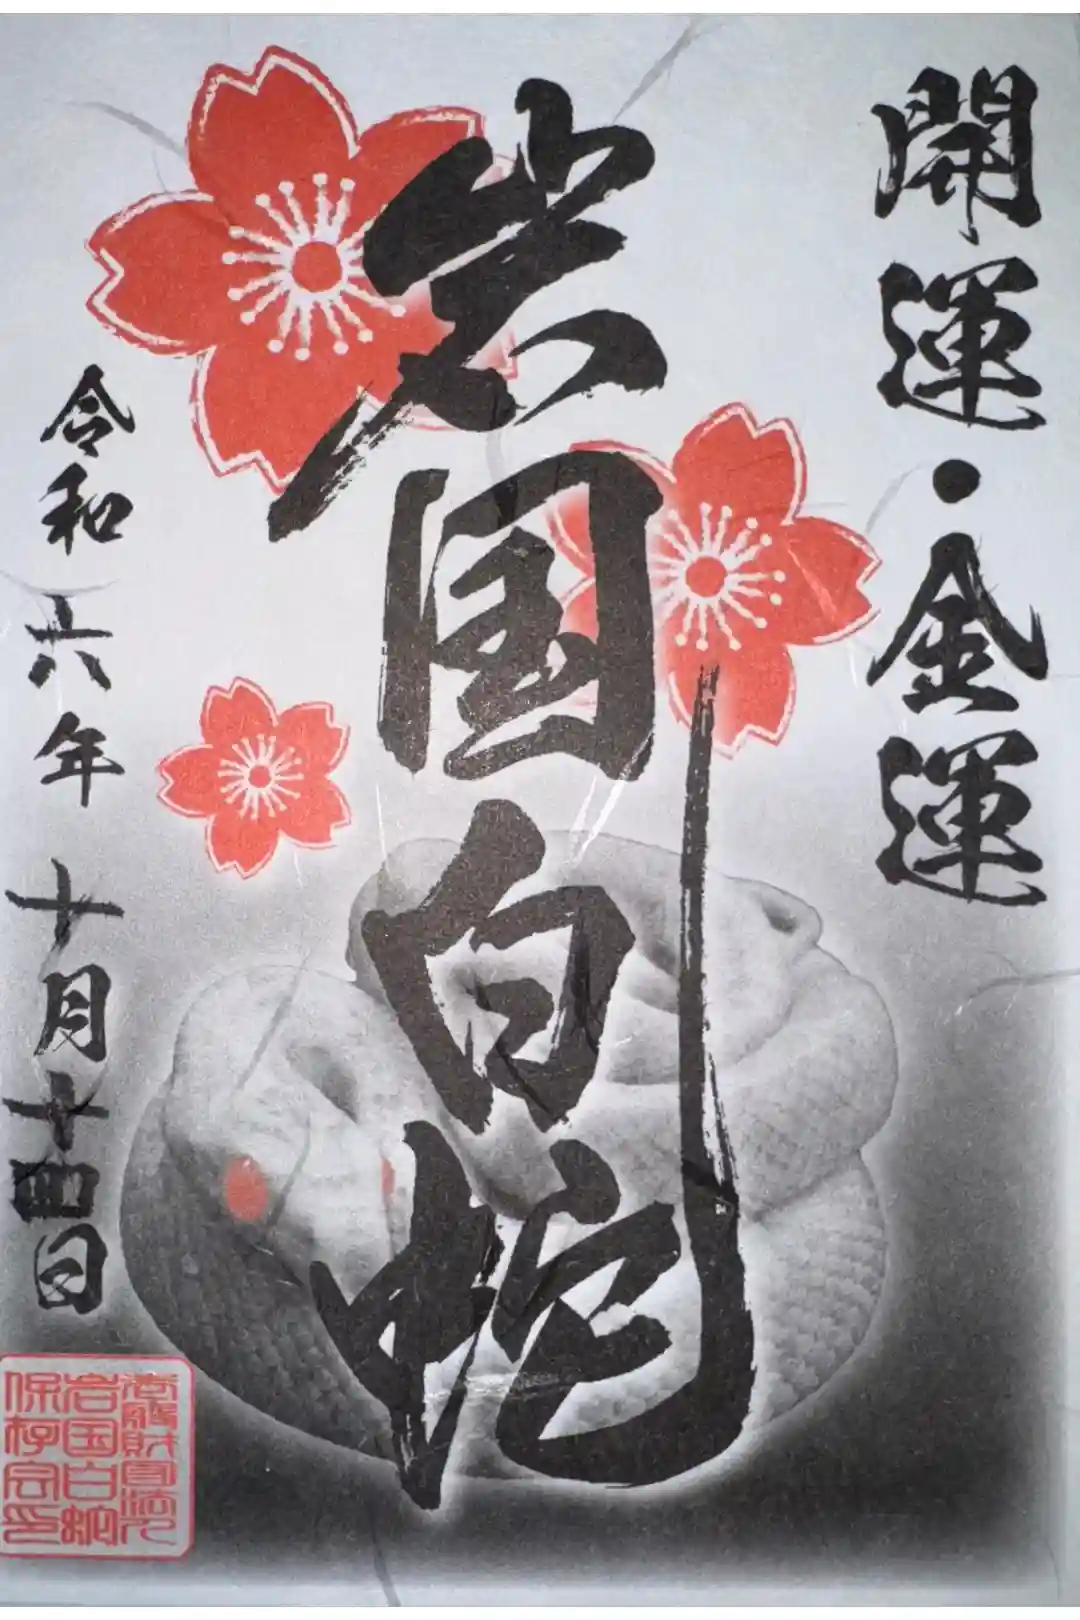 開運・金運
岩国白蛇
令和六年十月十四日
岩国白蛇
保存会印